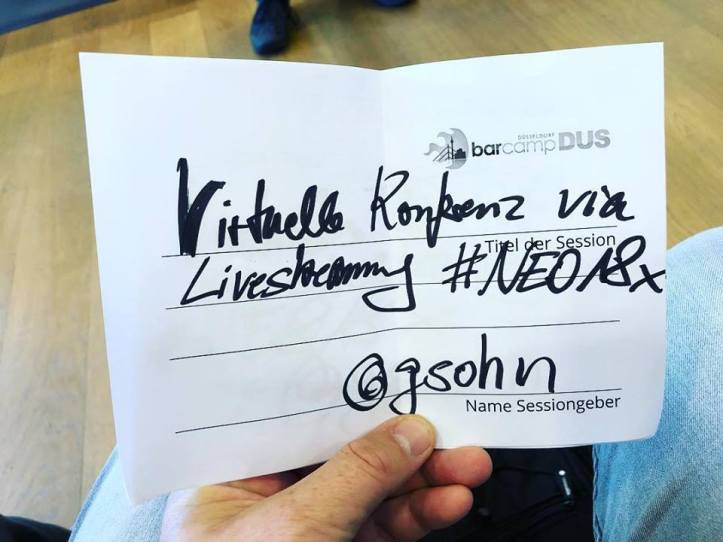 DÜSSELDORF
barcamp DUS
Virtuelle Konferenz via
Titel der Session
Livestreaming #NEO18x
@gsohn
Name Sessiongeber